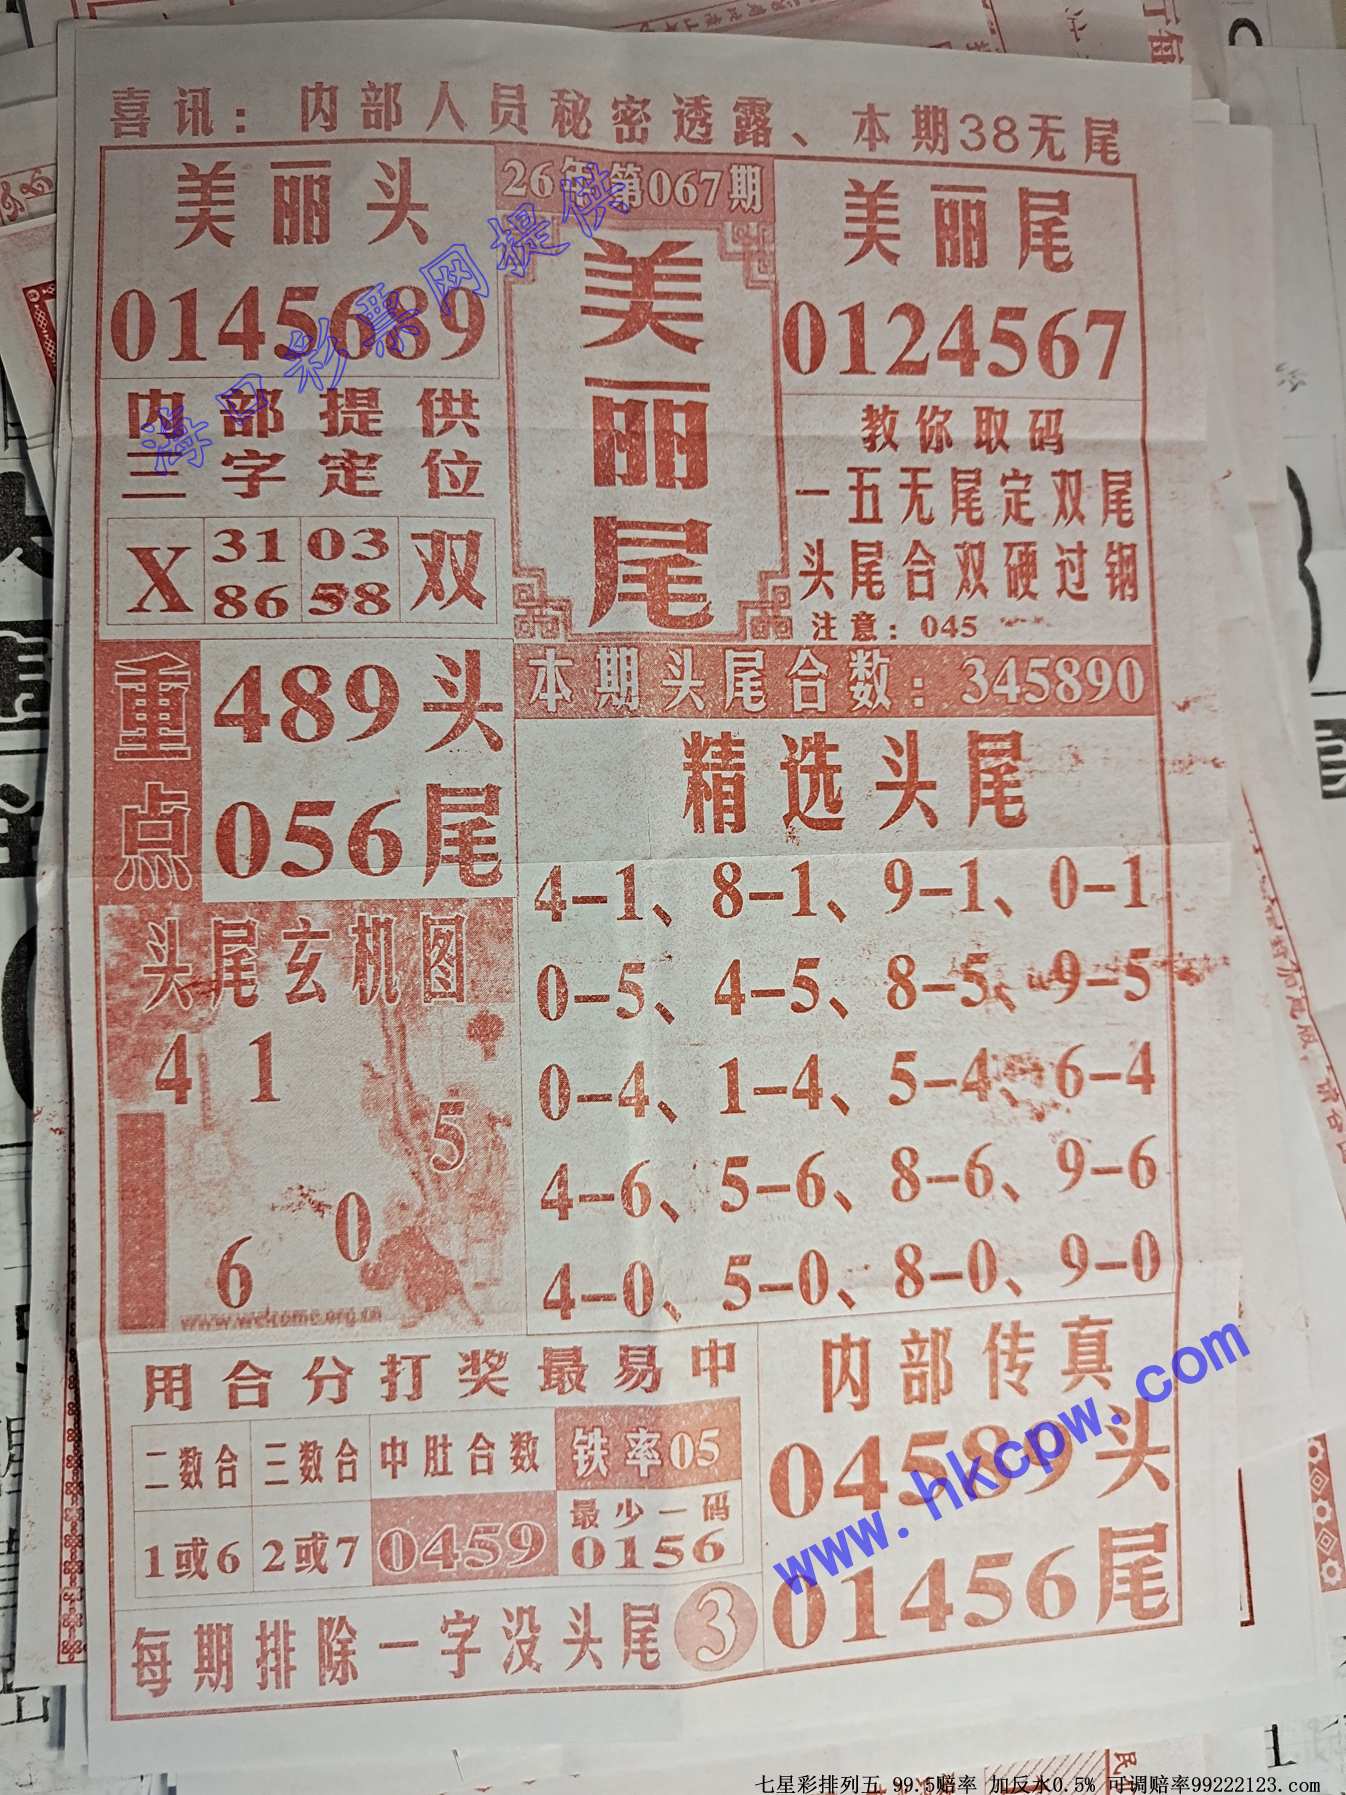 喜讯：内部人员秘密透露、本期38无尾
美丽头
0145689
26年第067期
美丽尾
美丽尾
0124567
内部提供
三字定位
X 31 03 双
86 58
教你取码
一五无尾定双尾
头尾合双硬过钢
注意：045
重点
489头
056尾
本期头尾合数：345890
精选头尾
4-1、8-1、9-1、0-1
0-5、4-5、8-5、9-5
0-4、1-4、5-4、6-4
4-6、5-6、8-6、9-6
4-0、5-0、8-0、9-0
头尾玄机图
4 1
5
0
6
www.welcome.org.cn
用合分打奖最易中
二数合 三数合 中肚合数 铁率05
1或6 2或7 0459 最少一码
0156
每期排除一字没头尾 3
内部传真
04589头
01456尾
海口彩票网提供
www.hkcpw.com
七星彩排列五 99.5赔率 加反水0.5% 可调赔率99222123.com